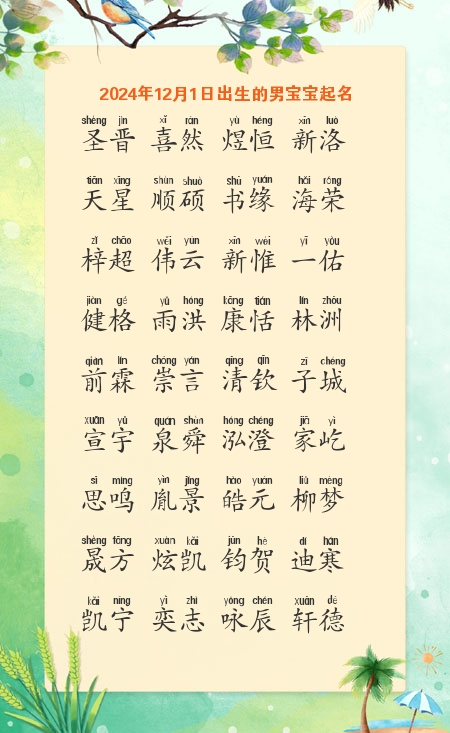 2024年12月1日出生的男宝宝起名
shèng jìn xǐ rán yù héng xīn luò
圣晋 喜然 煜恒 新洛
tiān xīng shùn shuò shū yuán hǎi róng
天星 顺硕 书缘 海荣
zǐ chāo wěi yún xīn wéi yī yòu
梓超 伟云 新惟 一佑
jiàn gé yǔ hóng kāng tián lín zhōu
健格 雨洪 康恬 林洲
qián lín chóng yán qīng qīn zǐ chéng
前霖 崇言 清钦 子城
xuān yǔ quán shùn hóng chéng jiā yì
宣宇 泉舜 泓澄 家屹
sī míng yìn jǐng hào yuán liǔ mèng
思鸣 胤景 皓元 柳梦
shèng fāng xuàn kǎi jūn hè dí hán
晟方 炫凯 钧贺 迪寒
kǎi níng yì zhì yǒng chén xuān dé
凯宁 奕志 咏辰 轩德